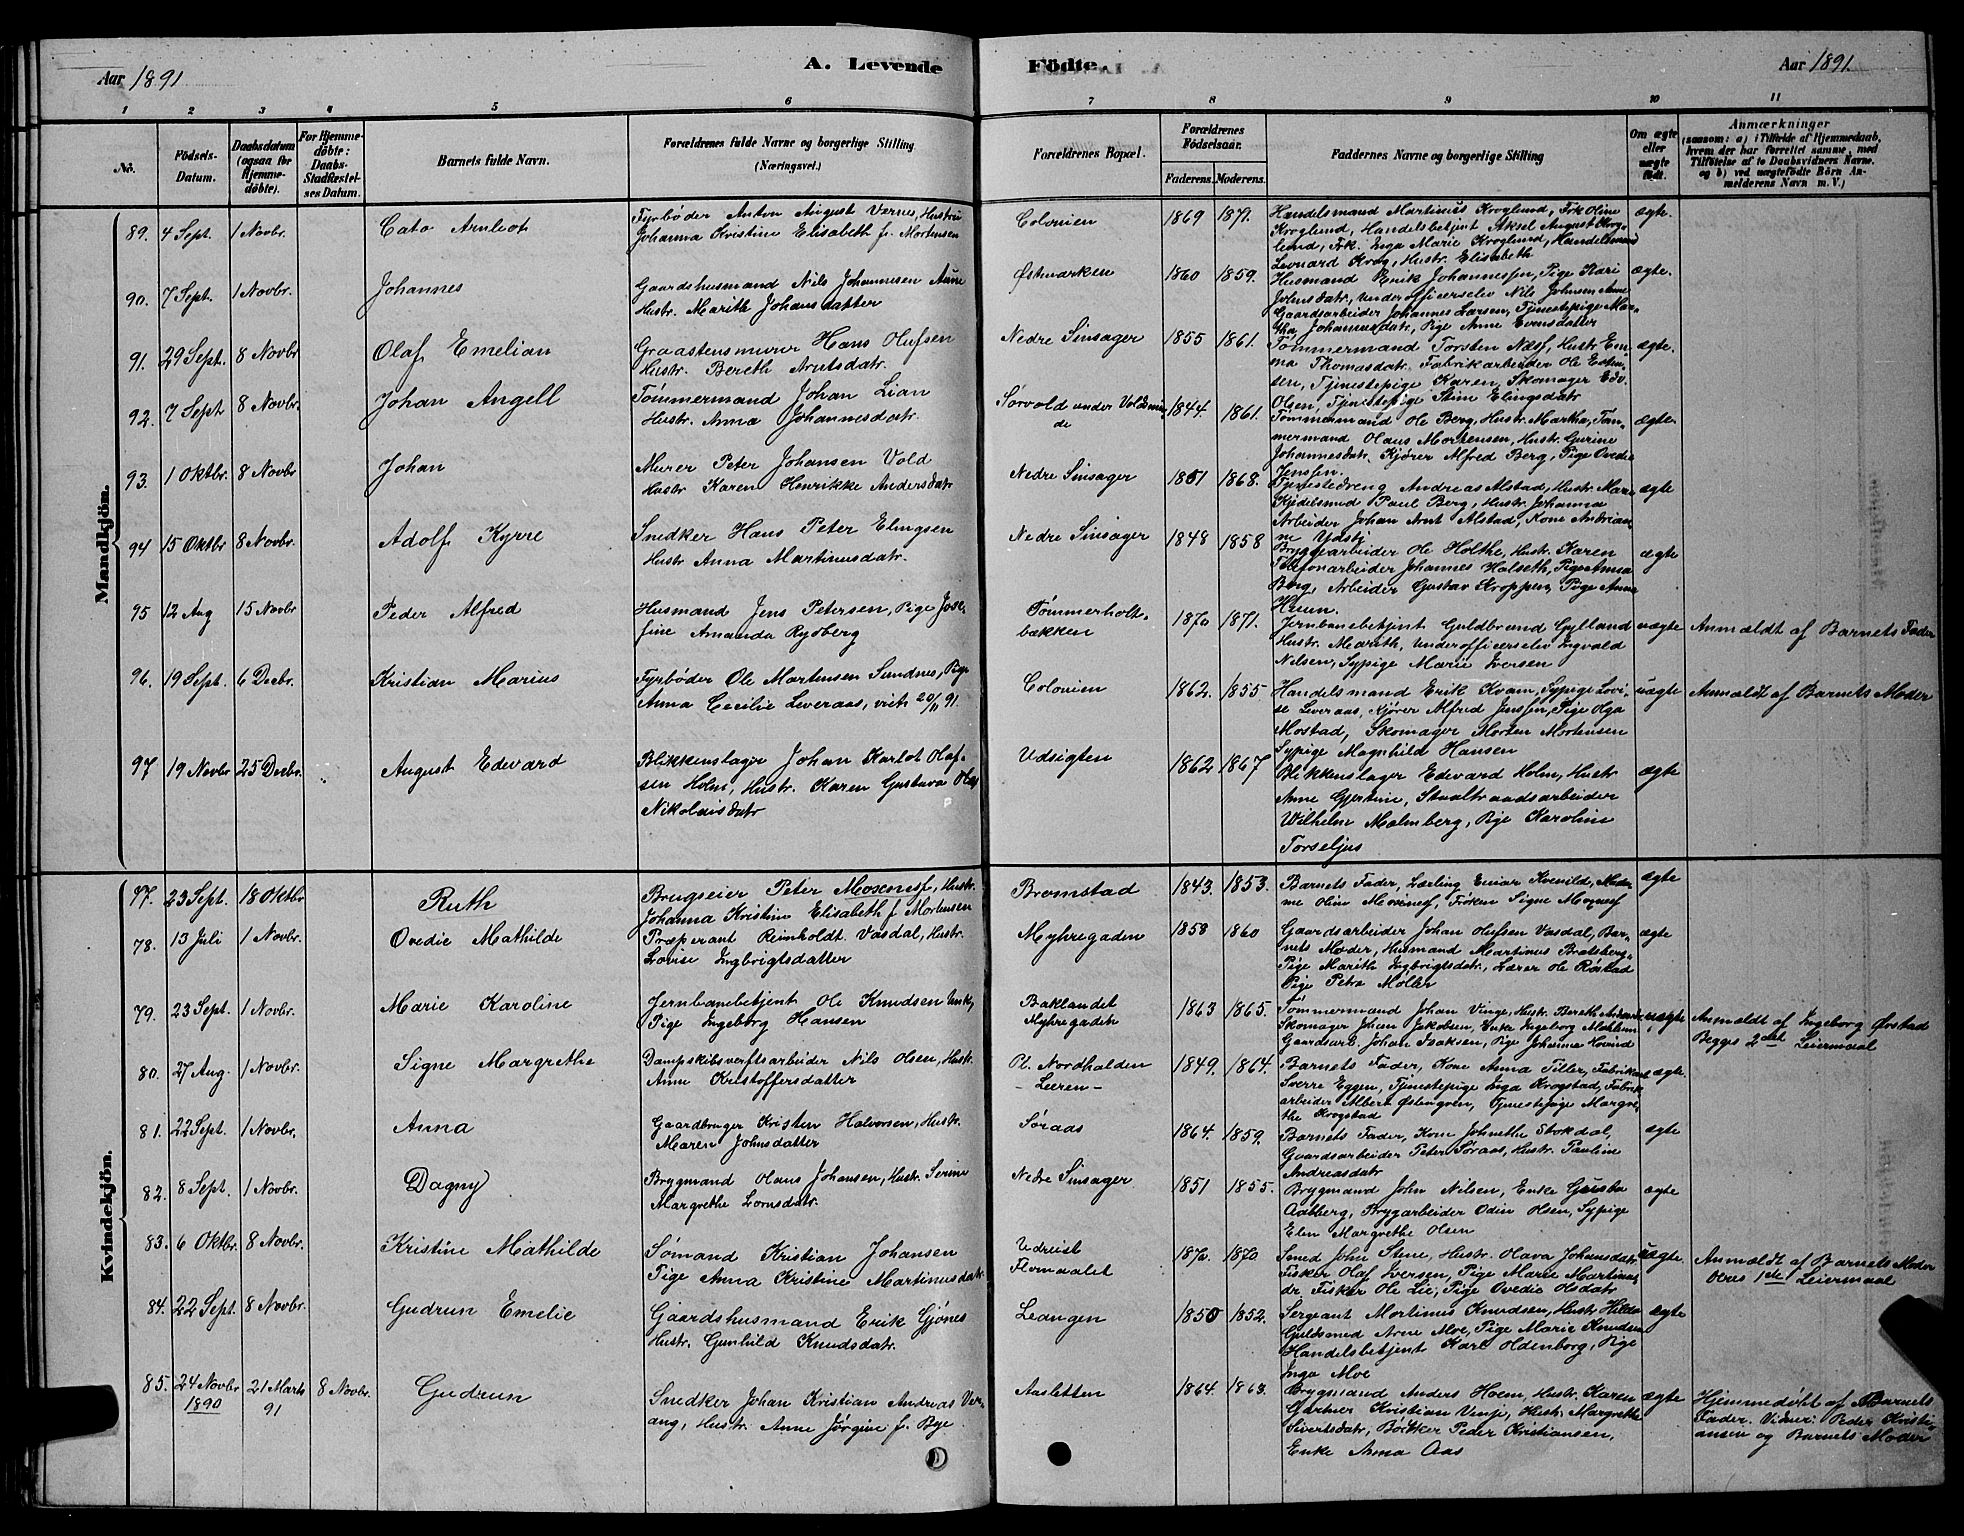 A. Levende Födte.
Aar 1891
Aar 1891.
1 2 3 4 5 6 7 8 9 10 11
No.
Födsels-Datum.
Daabsdatum (ogsaa for Hjemme-döbte).
For Hjemme-döbte: Daabs-Stadfæstel-ses Datum.
Barnets fulde Navn.
Forældrenes fulde Navne og borgerlige Stilling (Næringsvei.)
Forældrenes Bopæl.
Forældrenes Födselsaar.
Faderens. Moderens.
Faddernes Navne og borgerlige Stilling
Om ægte eller uægte födt.
Anmærkninger
(saasom: a) i Tilfælde af Hjemmedaab, hvem der har forrettet samme, med Tilföielse af to Daabsvidners Navne, og b) ved uægtefödte Börn Anmelderens Navn m. V.)
Mandkjön.
89. 4 Sept. 1 Novbr. Cato Arnleot
Fyrbøder Anton August Vernes, Hustru
Johanna Kristine Elisabeth f. Mortensen
Colonien 1869 1871.
Handelsmand Martinus Kroglund, Frk Oline
Kroglund, Handelsbetjent Aksel August Krog-
lund, Frk. Inga Marie Kroglund, Handelsmand
Leonard Krog, Hustr. Elisabeth
ægte.
90. 7 Sept. 1 Novbr. Johannes
Gaardshusmand Nils Johannesen Aune
Hustr. Marith Johansdatter
Østmarken 1860 1859.
Husmand Erik Johannessen, Pige Kari
Johnsdatr, Underofficerselev Nils Johnsen Aune
Gaardsarbeider Johannes Larsen, Tjenestepige Mar-
tha Johannesdatr, Pige Anne Evensdatter
ægte.
91. 29 Sept. 8 Novbr Olaf Emelian
Graastensmurer Hans Olufsen
Hustr. Bereth Arntsdatr.
Nedre Sinsager 1855 1861.
Tømmermand Torsten Næss, Hustr. Em-
ma Thomasdatr. Fabrikarbeider Ole Enten-
sen, Tjenestepige Karen, Skomager Edv.
Olsen, Tjenestepige Stine Elingsdatr
ægte.
92. 7 Sept 8 Novbr. Johan Angell
Tømmermand Johan Lian
Hustr. Anna Johannesdatr.
Sørvold under Voldsmin-
de 1844. 1861.
Tømmermand Ole Berg, Hustr. Martha, Tøm-
mermand Olaus Mortensen, Hustr. Gurine
Johannesdatr. Kjører Alfred Berg, Pige Ovedie
Jenssen.
ægte.
93. 1 Oktbr. 8 Novbr Johan
Murer Peter Johansen Vold
Hustr Karen Henrikke Andersdatr
Nedre Sinsager 1861 1868.
Tjenestedreng Andreas Alstad, Hustr. Mar-
Kjedelsmed Paul Berg, Hustr. Johanna
Arbeider Johan Arnt Alstad, Kone Antrian-
ne Ydsti
ægte
94 15 Oktbr 8 Novbr. Adolf Kyrre
Snedker Hans Peter Elingsen
Hustr Anna Martinusdatr.
Nedre Sinsager 1848 1858
Bryggearbeider Ole Holthe, Hustr. Karen
Telefonarbeider Johannes Halseth, Pige Anna
Borg, Arbeider Gustav Kroppen, Pige Anna
Huun.
ægte
95 12 Aug 15 Novbr. Peder Alfred
Husmand Jens Petersen, Pige Jose-
fine Amanda Rydberg
Tømmerholt-
bækken 1870 1871.
Jernbanebetjent Guldbrand Gylland
Hustr. Marith, Underofficerselev Ingvald
Nilsen, Sypige Marie Iversen
uægte Anmældt af Barnets Fader
96. 19 Sept. 6 Decbr. Kristian Marius
Fyrbøder Ole Martinsen Sundnes, Pige
Anna Cecilie Leveraas, vieth 20/11 91.
Colonien 1862. 1855
Handelsmand Erik Kvam, Sypige Lovi-
se Leveraas, Kjører Alfred Jenssen, Pige Olga
Mostad, Skomager Morten Mortensen
Sypige Magnhild Hansen
uægte Anmældt af Barnets Moder
97. 19 Novbr 25 Decbr. August Edevard
Blikkenslager Johan Karlot Olaf-
sen Holm, Hustr. Karen Gustava Olea
Nikolaisdatr
Udsigten 1862 1867
Blikkenslager Edevard Holm, Hustr
Anne Gjertine, Staaltraadsarbeider
Wilhelm Malmberg, Pige Karoline
Torseljus
ægte
Kvindekjön.
77. 23 Sept. 18 Oktbr Ruth
Brugseier Peter Moxness, Hustr.
Johanna Kristine Elisabeth f Mortensen
Bromstad 1843. 1853.
Barnets Fader, Lærling Einar Kvenild, Mada-
me Oline Moxness, Frøken Signe Moxness
ægte
78. 13 Juli 1 Novbr. Ovedie Mathilde
Præperant Reinholdt Vasdal, Hustr.
Lovise Ingbrigtsdatter
Myhregaden 1858 1860
Gaardsarbeider Johan Olufsen Vasdal, Bar-
nets Moder, Husmand Martinus Bratsberg-
Pige Marith Ingbrigtsdatr., Lærer Ole Røstad
Pige Petra Møller
ægte
79. 23 Sept. 1 Novbr. Marie Karoline
Jernbanebetjent Ole Knudsen Unk,
Pige Ingeborg Hansen
Baklandet
Myhregaden 1863 1865.
Tømmermand Johan Vinge, Hustr. Bereth
Skomager Johan Jakobsen, Enke Ingeborg
Gaardsarb. Johan Isaksen, Pige Johanna Hovind
uægte Anmældt af Ingeborg Østad
Begges 2det Leiermaal
80. 27 Aug. 1 Novbr. Signe Margrethe
Dampskibsverftsarbeider Nils Olsen, Hustr.
Anne Kristoffersdatter
Pl. Nordhalden
- Leeren - 1849. 1864.
Barnets Fader, Kone Anna Tiller, Fabrikant
Sverre Eggen, Tjenestepige Inga Krogstad, Fabrik-
arbeider Albert Østengren, Tjenestepige Margre-
the Krogstad
ægte.
81. 22 Sept. 1 Novbr. Anna
Gaardbruger Kristen Halvorsen, Hustr.
Maren Johnsdatter
Søraas 1864. 1859.
Barnets Fader, Kone Johnetta Stokdal,
Gaardsarbeider Peter Søraas, Hustr. Pauline
Andreasdatr
ægte
82. 8 Sept. 1 Novbr. Dagny
Brygmand Olaus Johansen, Hustr Serine
Margrethe Lornsdatr.
Nedre Sinsager 1851 1855.
Brygmand John Nilsen, Enke Gjusba
Aalberg, Brygarbeider Odin Olsen, Sypige
Elen Margrethe Olsen
ægte
83. 6 Oktbr. 8 Novbr. Kristine Mathilde
Sømand Kristian Johansen
Pige Anna Kristine Martinusdatr
Udreist
Ilemaalet 1870. 1870.
Smed John Stene, Hustr. Olava Johansdatr.
Fisker Olaf Iversen, Pige Marie Martinus
dr. Fisker Ole Lie, Pige Ovedie Olsdatr
uægte. Anmældt af Barnets Moder
deres 1ste Leiermaal
84. 22 Sept. 8 Novbr. Gudrun Emelie
Gaardshusmand Erik Gjønes
Hustr. Gunhild Knudsdatr.
Leangen 1850 1852.
Sergeant Mortinus Knudsen, Hustr Hilda
Guldsmed Arne Moe, Pige Marie Knudsen
Handelsbetjent Karl Oldenborg, Pige
Inga Moe
ægte
85. 24 Novbr 1890 21 Marts 91 8 Novbr. Gudrun
Snedker Johan Kristian Andreas Ver-
ang, Hustr. Anne Jørgine f. Bye
Aasletten 1864. 1863.
Brygmand Anders Hoem, Hustr. Karen
Gartner Kristian Venji, Hustr. Margrethe
Sivertsdatr, Bøkker Peder Kristiansen,
Enke Anna Aas
ægte Hjemmedøbt af Barnets
Fader. Vidner: Peder Kristi-
ansen og Barnets Moder